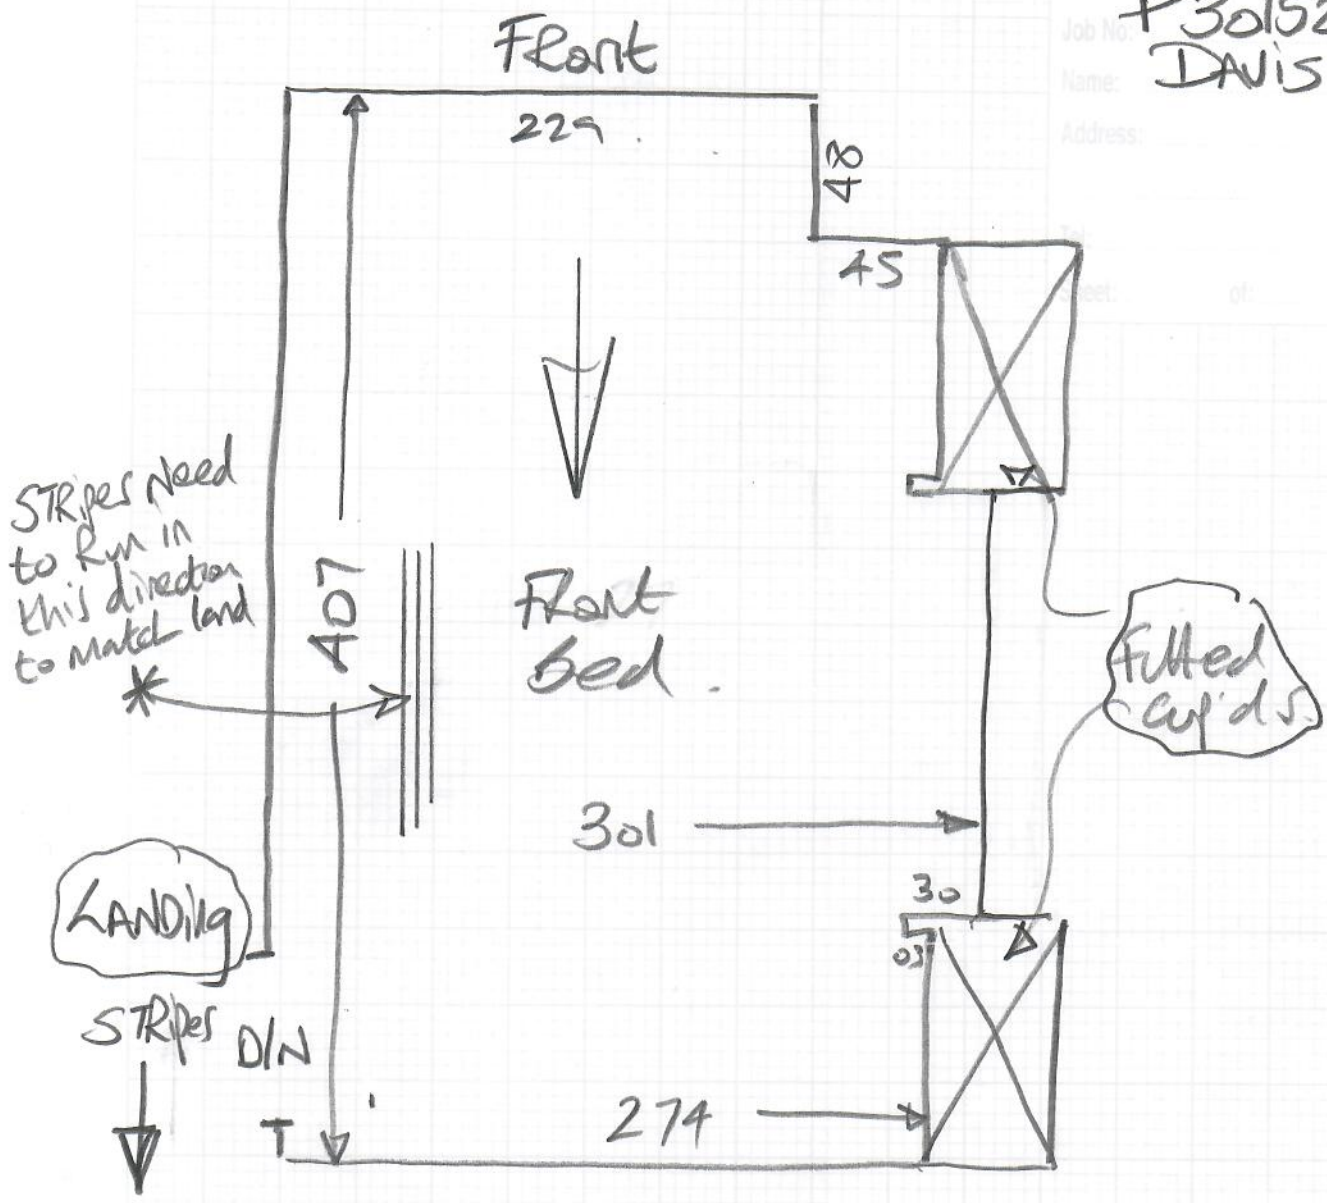 Front
Job No: P30152
Name: DAVIS
Address:
229
48
Tel:
45
Sheet: of:
STRipes Need
to Run in
this direction
to Match land
*
407
Front
bed.
Fitted
Cup'ds.
301
30
LANDing
03
STRipes
D/N
274